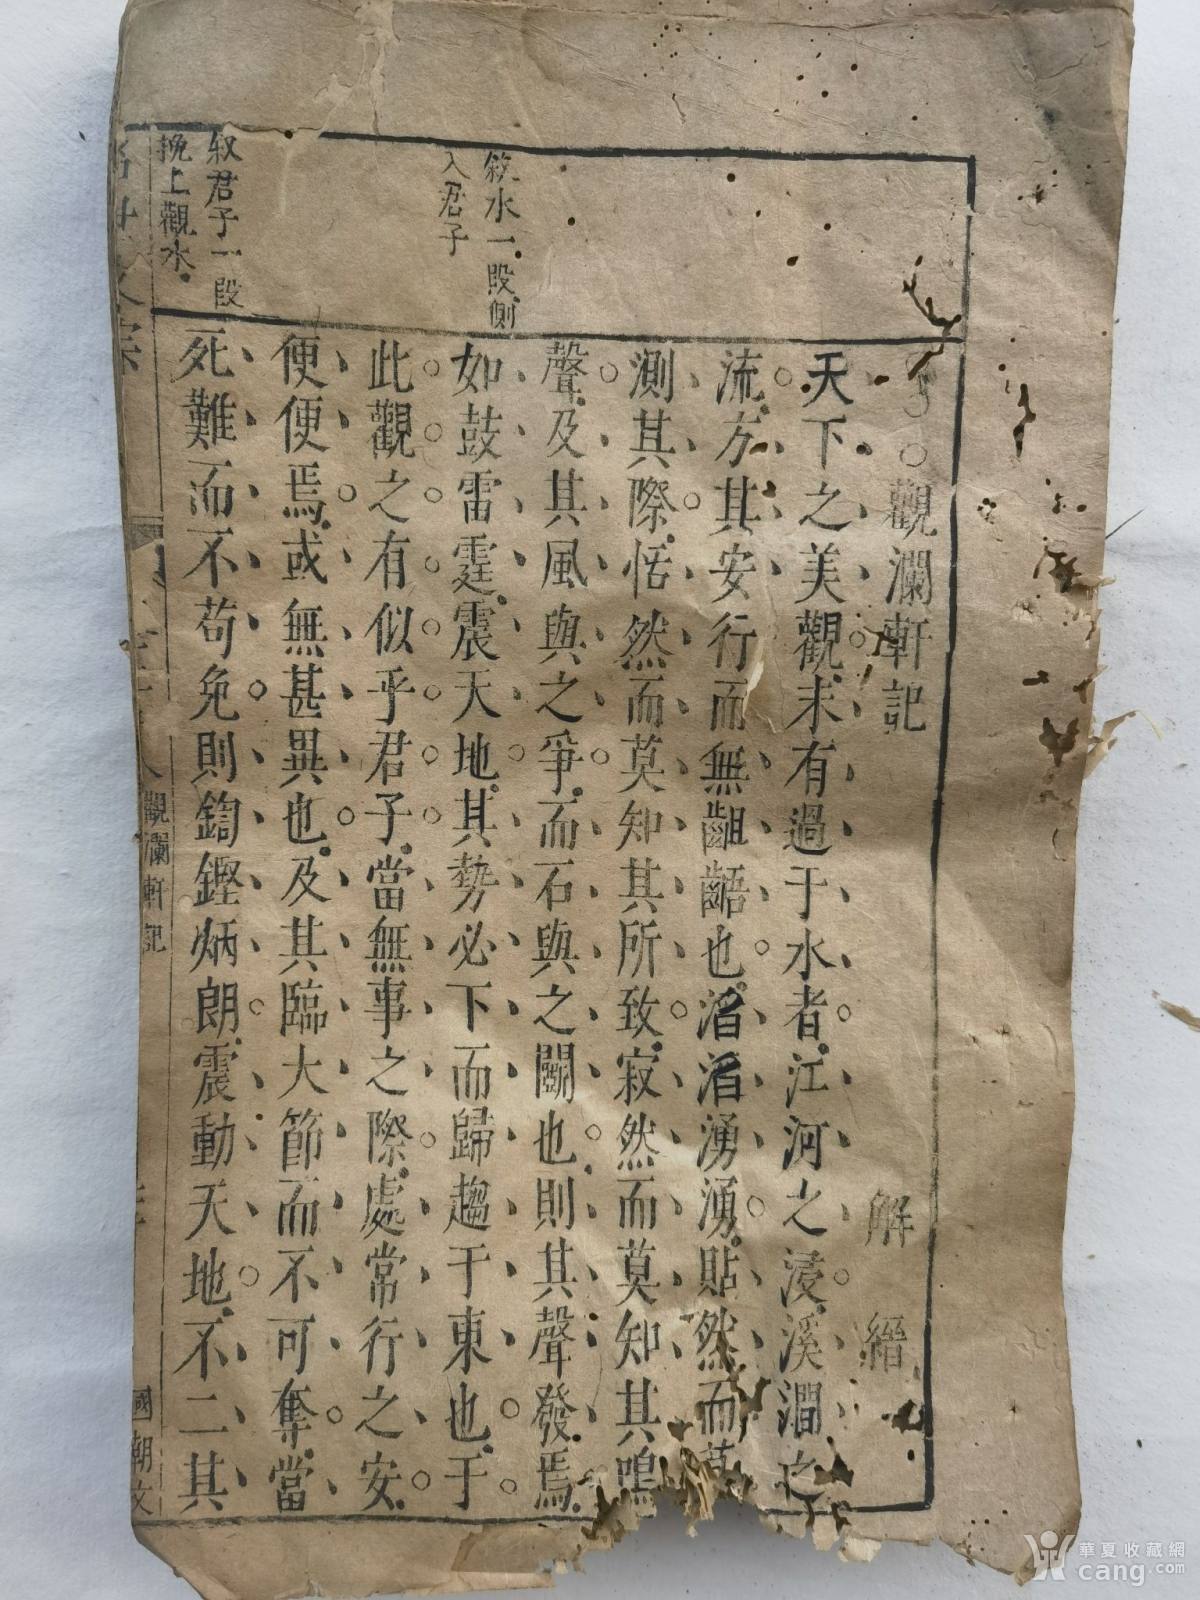 觀瀾軒記
解縉
天下之美觀未有過于水者江河之浸溪澗之
流方其安行而無齟齬也滔滔湧湧貼然而莫
測其際恬然而莫知其所致寂然而莫知其鳴
聲及其風與之爭而石與之鬬也則其聲發焉
如鼓雷霆震天地其勢必下而歸趨于東也于
此觀之有似乎君子當無事之際處常行之安
便便焉或無甚異也及其臨大節而不可奪當
死難而不苟免則鍧鏗炳朗震動天地不二其
敘水一段側
入君子
叙君子一段
挽上觀水
觀瀾軒記
國朝文
華夏收藏網
cang.com